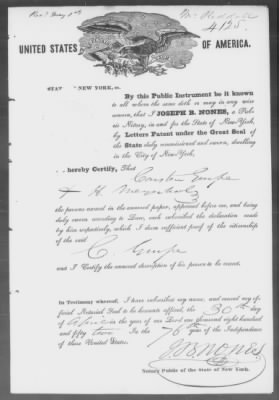 Rec'd May 1st
4125.
UNITED STATES OF AMERICA.
NEW YORK, ss.
By this Public Instrument be it known
to all whom the same doth or may in any wise
concern, that I JOSEPH B. NONES, a Pub-
lic Notary, in and for the State of New-York,
by Letters Patent under the Great Seal of
the State duly commissioned and sworn, dwelling
in the City of New-York,
hereby Certify, That Carsten
+ H
the persons named in the annexed paper, appeared before me, and being
duly sworn according to Law, each subscribed the declaration made
by him respectively, which I deem sufficient proof of the citizenship
of the said
C.
and I Certify the annexed description of his person to be correct.
In Testimony whereof, I have subscribed my name, and caused my of-
ficial Notarial Seal to be hereunto affixed, the 30th day
of April in the year of our Lord one thousand eight hundred
and fifty two In the 76th year of the Independence
of these United States.
J B NONES
Notary Public of the State of New York.